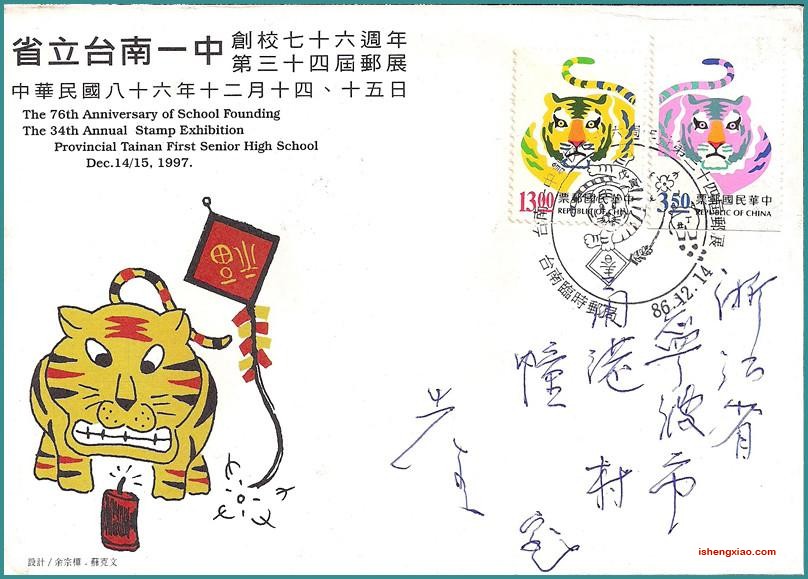 省立台南一中
創校七十六週年
第三十四屆郵展
中華民國八十六年十二月十四、十五日
The 76th Anniversary of School Founding
The 34th Annual Stamp Exhibition
Provincial Tainan First Senior High School
Dec.14/15, 1997.
福
13.00
票郵國民華中
REPUBLIC OF CHINA
3.50
票郵國民華中
REPUBLIC OF CHINA
春
台南臨時郵局
86.12.14
浙江省
寧波市
村
設計/余宗樺.蘇克文
ishengxiao.com